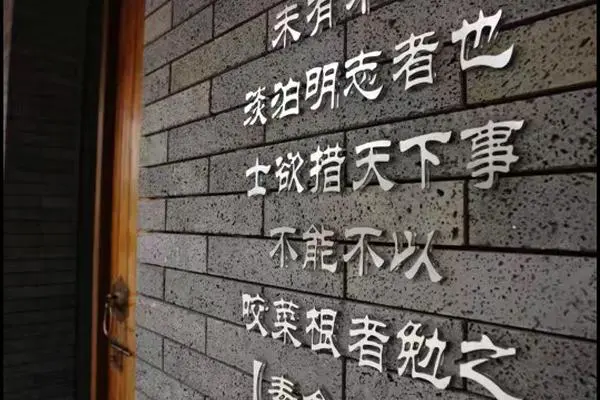 未有不
淡泊明志者也
士欲措天下事
不能不以
咬菜根者勉之